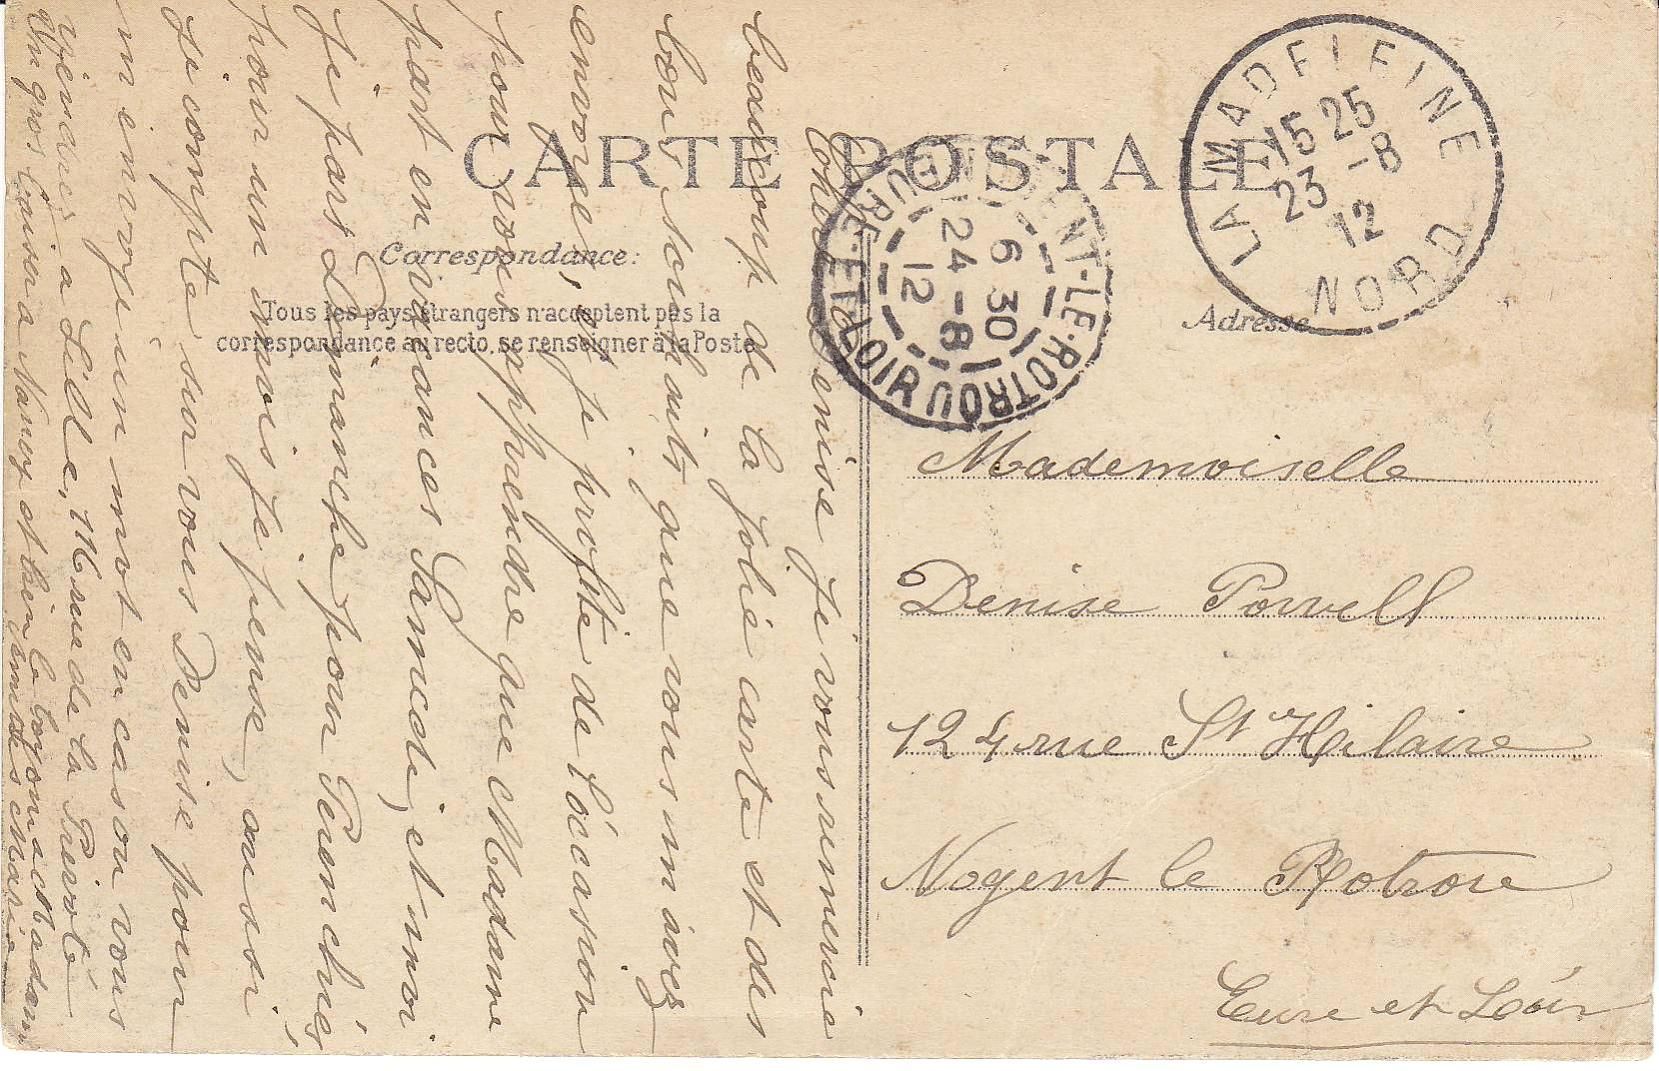 CARTE POSTALE
Correspondance:
Tous les pays étrangers n'acceptent pas la
correspondance au recto, se renseigner à la Poste
Adresse
LA MADELEINE
15 25
23 -8
12
NORD
NOGENT-LE-ROTROU
6 30
24 -8
12
EURE-ET-LOIR
Mademoiselle
Denise Powell
124 rue St Hilaire
Nogent le Rotrou
Eure et Loir
Chère Denise je vous remercie
beaucoup de la jolie carte et des
bons souhaits que vous m'avez
envoyé, et je profite de l'occasion
pour vous apprendre que Madame
part en vacances Samedi, et moi
je pars Dimanche pour Perenchies,
pour un mois je pense, aussi
je compte sur vous Denise pour
m'envoyer un mot en cas ou vous
viendriez a Lille, 116 rue de la Prévoté
Un gros baiser a Nanou et bien le bonjour a Madame
amitiés Maria